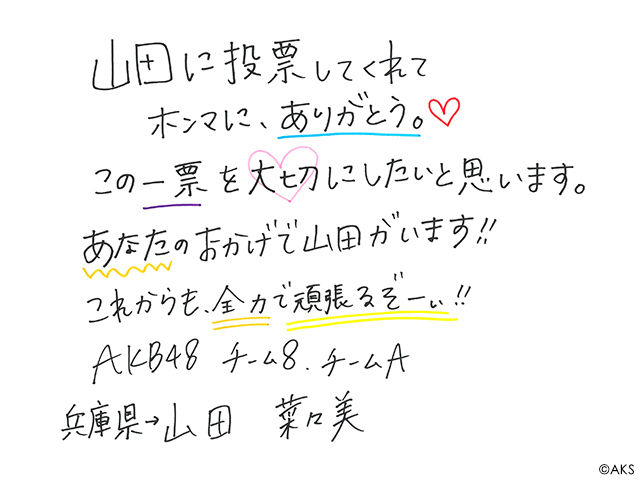 山田に投票してくれて
ホンマに、ありがとう。♡
この一票を大切にしたいと思います。
あなたのおかげで山田がいます!!
これからも、全力で頑張るぞーぃ!!
AKB48 チーム8. チームA
兵庫県→山田 菜々美
©AKS